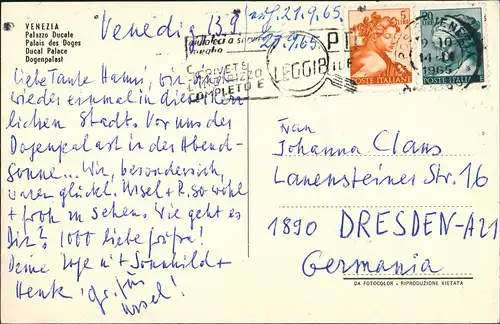 VENEZIA
Palazzo Ducale
Palais des Doges
Ducal Palace
Dogenpalast
Venedig 13.9.
21.9.65.
27.9.65.
AIUTATECI A SERVIRVI
MEGLIO
SCRIVETE
INDIRIZZO
COMPLETO E
LEGGIBILE
5
LIRE
20 LIRE
POSTE ITALIANE
POSTE ITALIANE
VENEZIA
1965
Liebe Tante Hanni, bin
wieder einmal in dieser herr-
lichen Stadt. Vor uns der
Dogenpalast in der Abend-
sonne... Wir, besonders ich,
waren glückl. Ursel + R. so wohl
+ froh zu sehen. Wie geht es
Dir? 1000 liebe
Deine Inge mit Sonnhild +
Henk
Ursel!
Frau
Johanna Claus
Lauensteiner Str. 16
1890 DRESDEN-A21
Germania
DA FOTOCOLOR - RIPRODUZIONE VIETATA